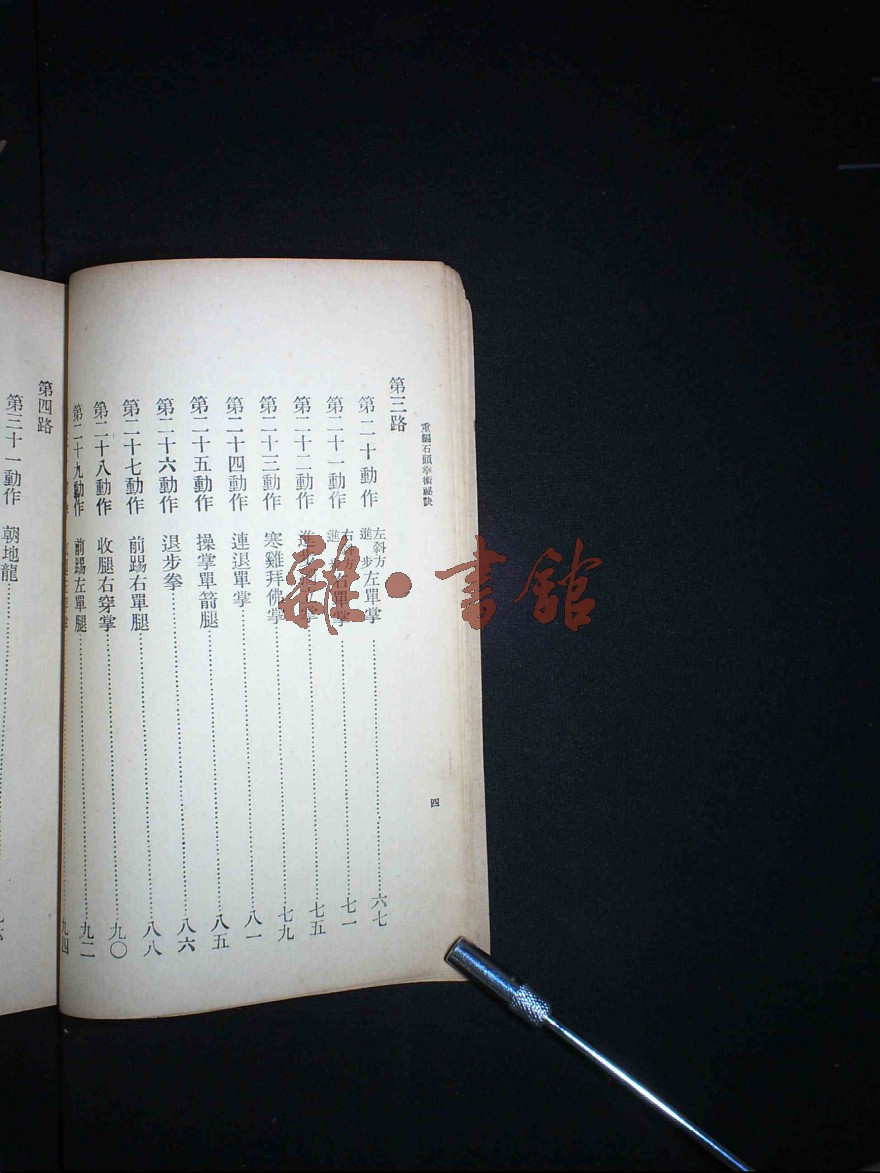 重編石頭拳術祕訣
四
第三路
第二十動作 左斜方進步左單掌 六七
第二十一動作 右斜方進步右單掌 七一
第二十二動作 進步 掌 七五
第二十三動作 寒雞拜佛掌 七九
第二十四動作 連退單掌 八一
第二十五動作 操掌單箭腿 八五
第二十六動作 退步拳 八六
第二十七動作 前踢右單腿 八八
第二十八動作 收腿右穿掌 九〇
第二十九動作 前踢左單腿 九二
九四
第四路
第三十一動作 朝地龍
雜·書館